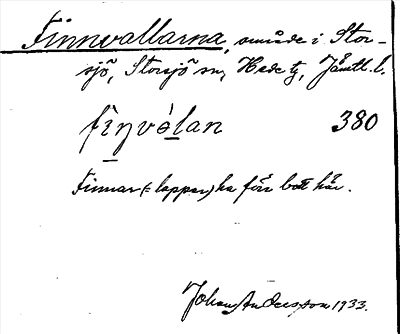 Finnvallarna, område i Stor-
sjö, Storsjö sn, Hede tg, Jämtl. l.
fìŋvòlan 380
Finnar (= lappar) ha förr bott här.
Johan Andersson 1933.